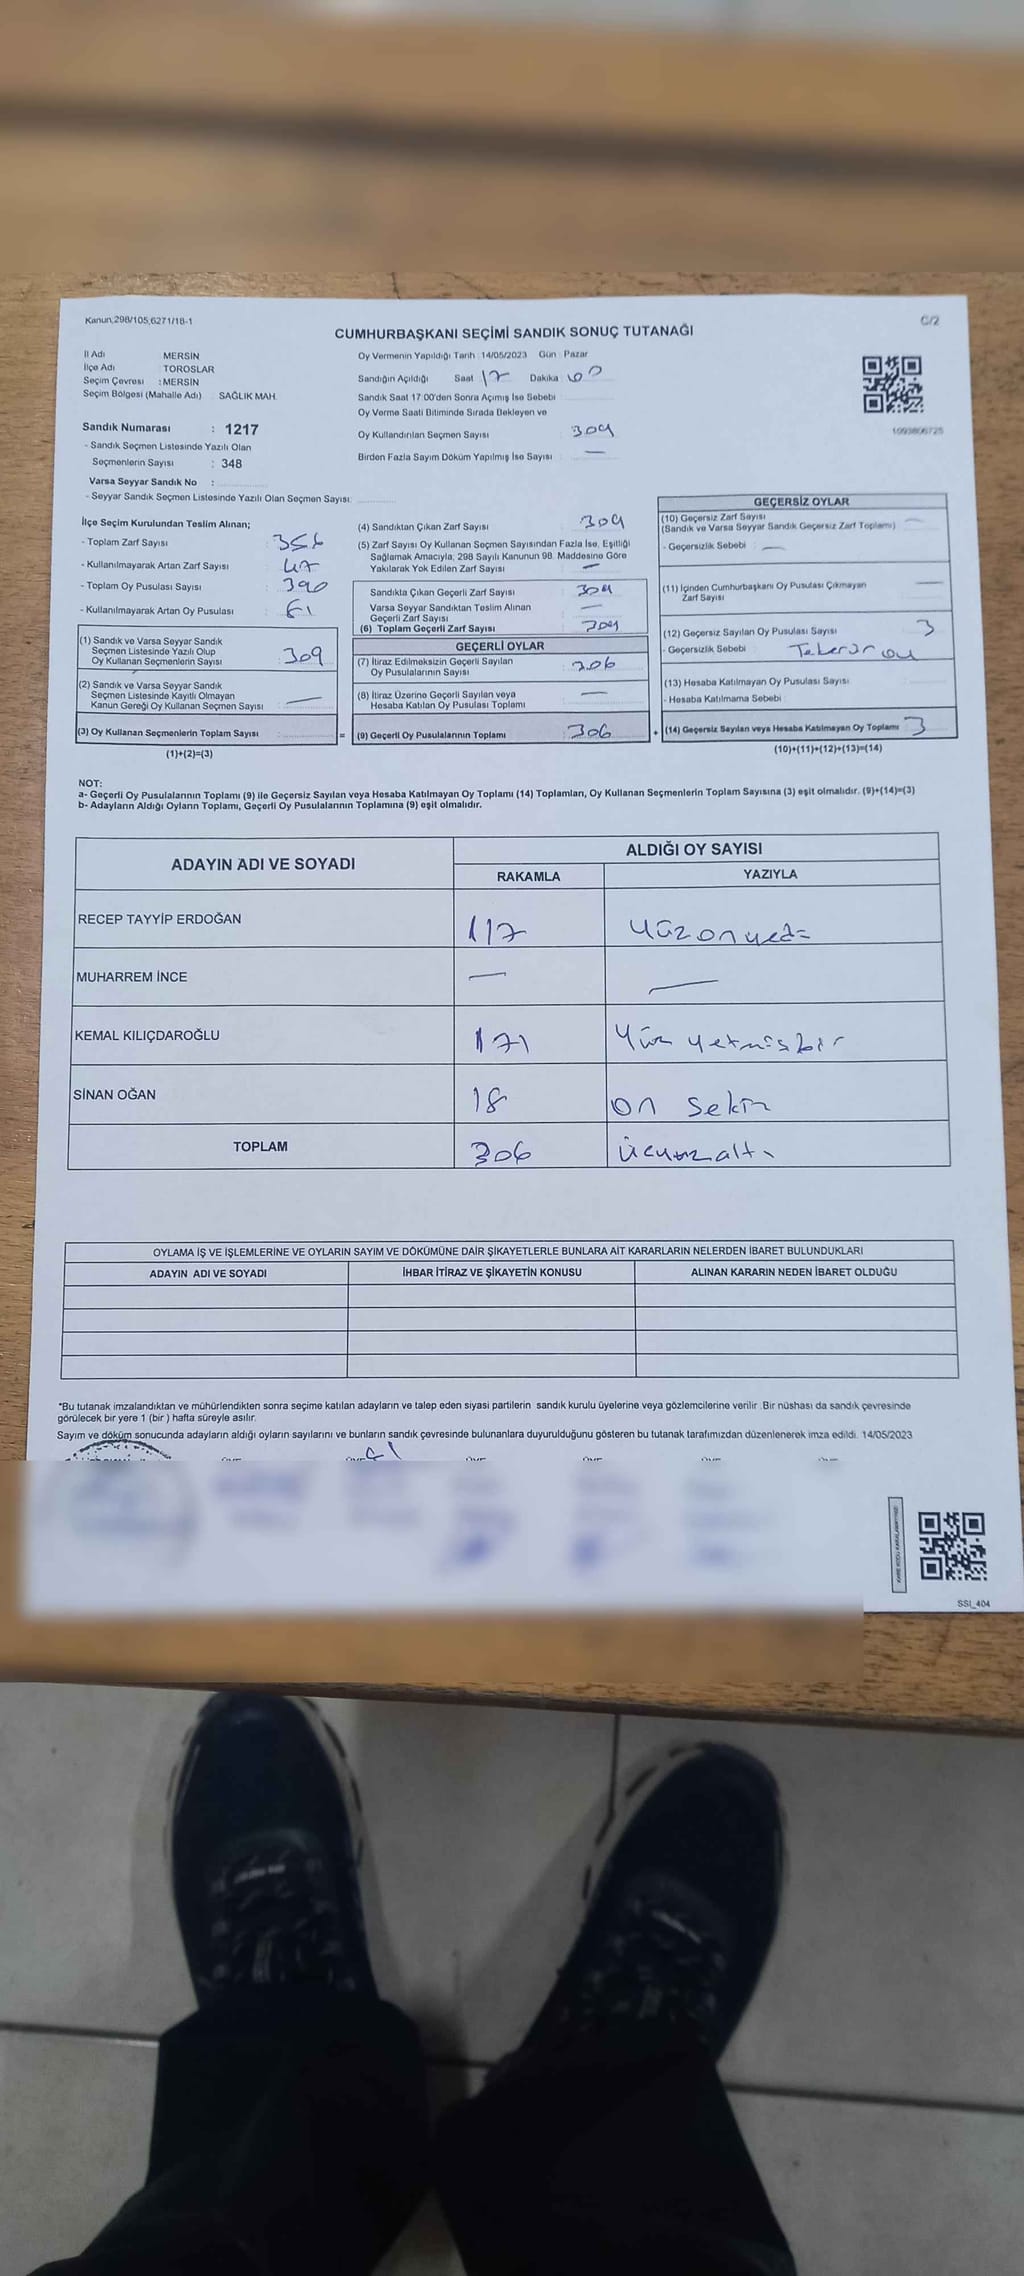 Kanun;298/105,6271/18-1
C/2
CUMHURBAŞKANI SEÇİMİ SANDIK SONUÇ TUTANAĞI
İl Adı MERSİN
İlçe Adı TOROSLAR
Seçim Çevresi : MERSİN
Seçim Bölgesi (Mahalle Adı) SAĞLIK MAH.
Sandık Numarası : 1217
- Sandık Seçmen Listesinde Yazılı Olan
Seçmenlerin Sayısı : 348
Varsa Seyyar Sandık No :
- Seyyar Sandık Seçmen Listesinde Yazılı Olan Seçmen Sayısı:
Oy Vermenin Yapıldığı Tarih : 14/05/2023 Gün : Pazar
Sandığın Açıldığı Saat 17 Dakika 00
Sandık Saat 17:00'den Sonra Açılmış İse Sebebi :
Oy Verme Saati Bitiminde Sırada Bekleyen ve
Oy Kullandırılan Seçmen Sayısı 309
Birden Fazla Sayım Döküm Yapılmış İse Sayısı : —
1093806725
İlçe Seçim Kurulundan Teslim Alınan;
- Toplam Zarf Sayısı : 356
- Kullanılmayarak Artan Zarf Sayısı : 47
- Toplam Oy Pusulası Sayısı : 390
- Kullanılmayarak Artan Oy Pusulası : 81
(1) Sandık ve Varsa Seyyar Sandık
Seçmen Listesinde Yazılı Olup
Oy Kullanan Seçmenlerin Sayısı : 309
(2) Sandık ve Varsa Seyyar Sandık
Seçmen Listesinde Kayıtlı Olmayan
Kanun Gereği Oy Kullanan Seçmen Sayısı : —
(3) Oy Kullanan Seçmenlerin Toplam Sayısı :
(1)+(2)=(3)
(4) Sandıktan Çıkan Zarf Sayısı : 309
(5) Zarf Sayısı Oy Kullanan Seçmen Sayısından Fazla İse, Eşitliği
Sağlamak Amacıyla, 298 Sayılı Kanunun 98. Maddesine Göre
Yakılarak Yok Edilen Zarf Sayısı : —
Sandıkta Çıkan Geçerli Zarf Sayısı : 309
Varsa Seyyar Sandıktan Teslim Alınan
Geçerli Zarf Sayısı : —
(6) Toplam Geçerli Zarf Sayısı : 309
GEÇERLİ OYLAR
(7) İtiraz Edilmeksizin Geçerli Sayılan
Oy Pusulalarının Sayısı : 306
(8) İtiraz Üzerine Geçerli Sayılan veya
Hesaba Katılan Oy Pusulası Toplamı : —
= (9) Geçerli Oy Pusulalarının Toplamı : 306
GEÇERSİZ OYLAR
(10) Geçersiz Zarf Sayısı : —
(Sandık ve Varsa Seyyar Sandık Geçersiz Zarf Toplamı)
- Geçersizlik Sebebi : —
(11) İçinden Cumhurbaşkanı Oy Pusulası Çıkmayan
Zarf Sayısı —
(12) Geçersiz Sayılan Oy Pusulası Sayısı : 3
- Geçersizlik Sebebi :
(13) Hesaba Katılmayan Oy Pusulası Sayısı :
- Hesaba Katılmama Sebebi :
+ (14) Geçersiz Sayılan veya Hesaba Katılmayan Oy Toplamı : 3
(10)+(11)+(12)+(13)=(14)
NOT:
a- Geçerli Oy Pusulalarının Toplamı (9) ile Geçersiz Sayılan veya Hesaba Katılmayan Oy Toplamı (14) Toplamları, Oy Kullanan Seçmenlerin Toplam Sayısına (3) eşit olmalıdır. (9)+(14)=(3)
b- Adayların Aldığı Oyların Toplamı, Geçerli Oy Pusulalarının Toplamına (9) eşit olmalıdır.
ADAYIN ADI VE SOYADI ALDIĞI OY SAYISI
RAKAMLA YAZIYLA
RECEP TAYYİP ERDOĞAN 117 Yüzonyedi
MUHARREM İNCE — —
KEMAL KILIÇDAROĞLU 171 Yüz yetmişbir
SİNAN OĞAN 18 on sekiz
TOPLAM 306 Üçyüzaltı
OYLAMA İŞ VE İŞLEMLERİNE VE OYLARIN SAYIM VE DÖKÜMÜNE DAİR ŞİKAYETLERLE BUNLARA AİT KARARLARIN NELERDEN İBARET BULUNDUKLARI
ADAYIN ADI VE SOYADI İHBAR İTİRAZ VE ŞİKAYETİN KONUSU ALINAN KARARIN NEDEN İBARET OLDUĞU
*Bu tutanak imzalandıktan ve mühürlendikten sonra seçime katılan adayların ve talep eden siyasi partilerin sandık kurulu üyelerine veya gözlemcilerine verilir. Bir nüshası da sandık çevresinde
görülecek bir yere 1 (bir ) hafta süreyle asılır.
Sayım ve döküm sonucunda adayların aldığı oyların sayılarını ve bunların sandık çevresinde bulunanlara duyurulduğunu gösteren bu tutanak tarafımızdan düzenlenerek imza edildi. 14/05/2023
SSI_404